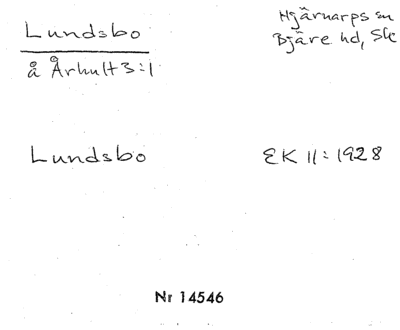 Lundsbo
å Århult 3:1
Hjärnarps sn
Bjäre hd, Sk
Lundsbo
EK 11:1928
Nr 14546